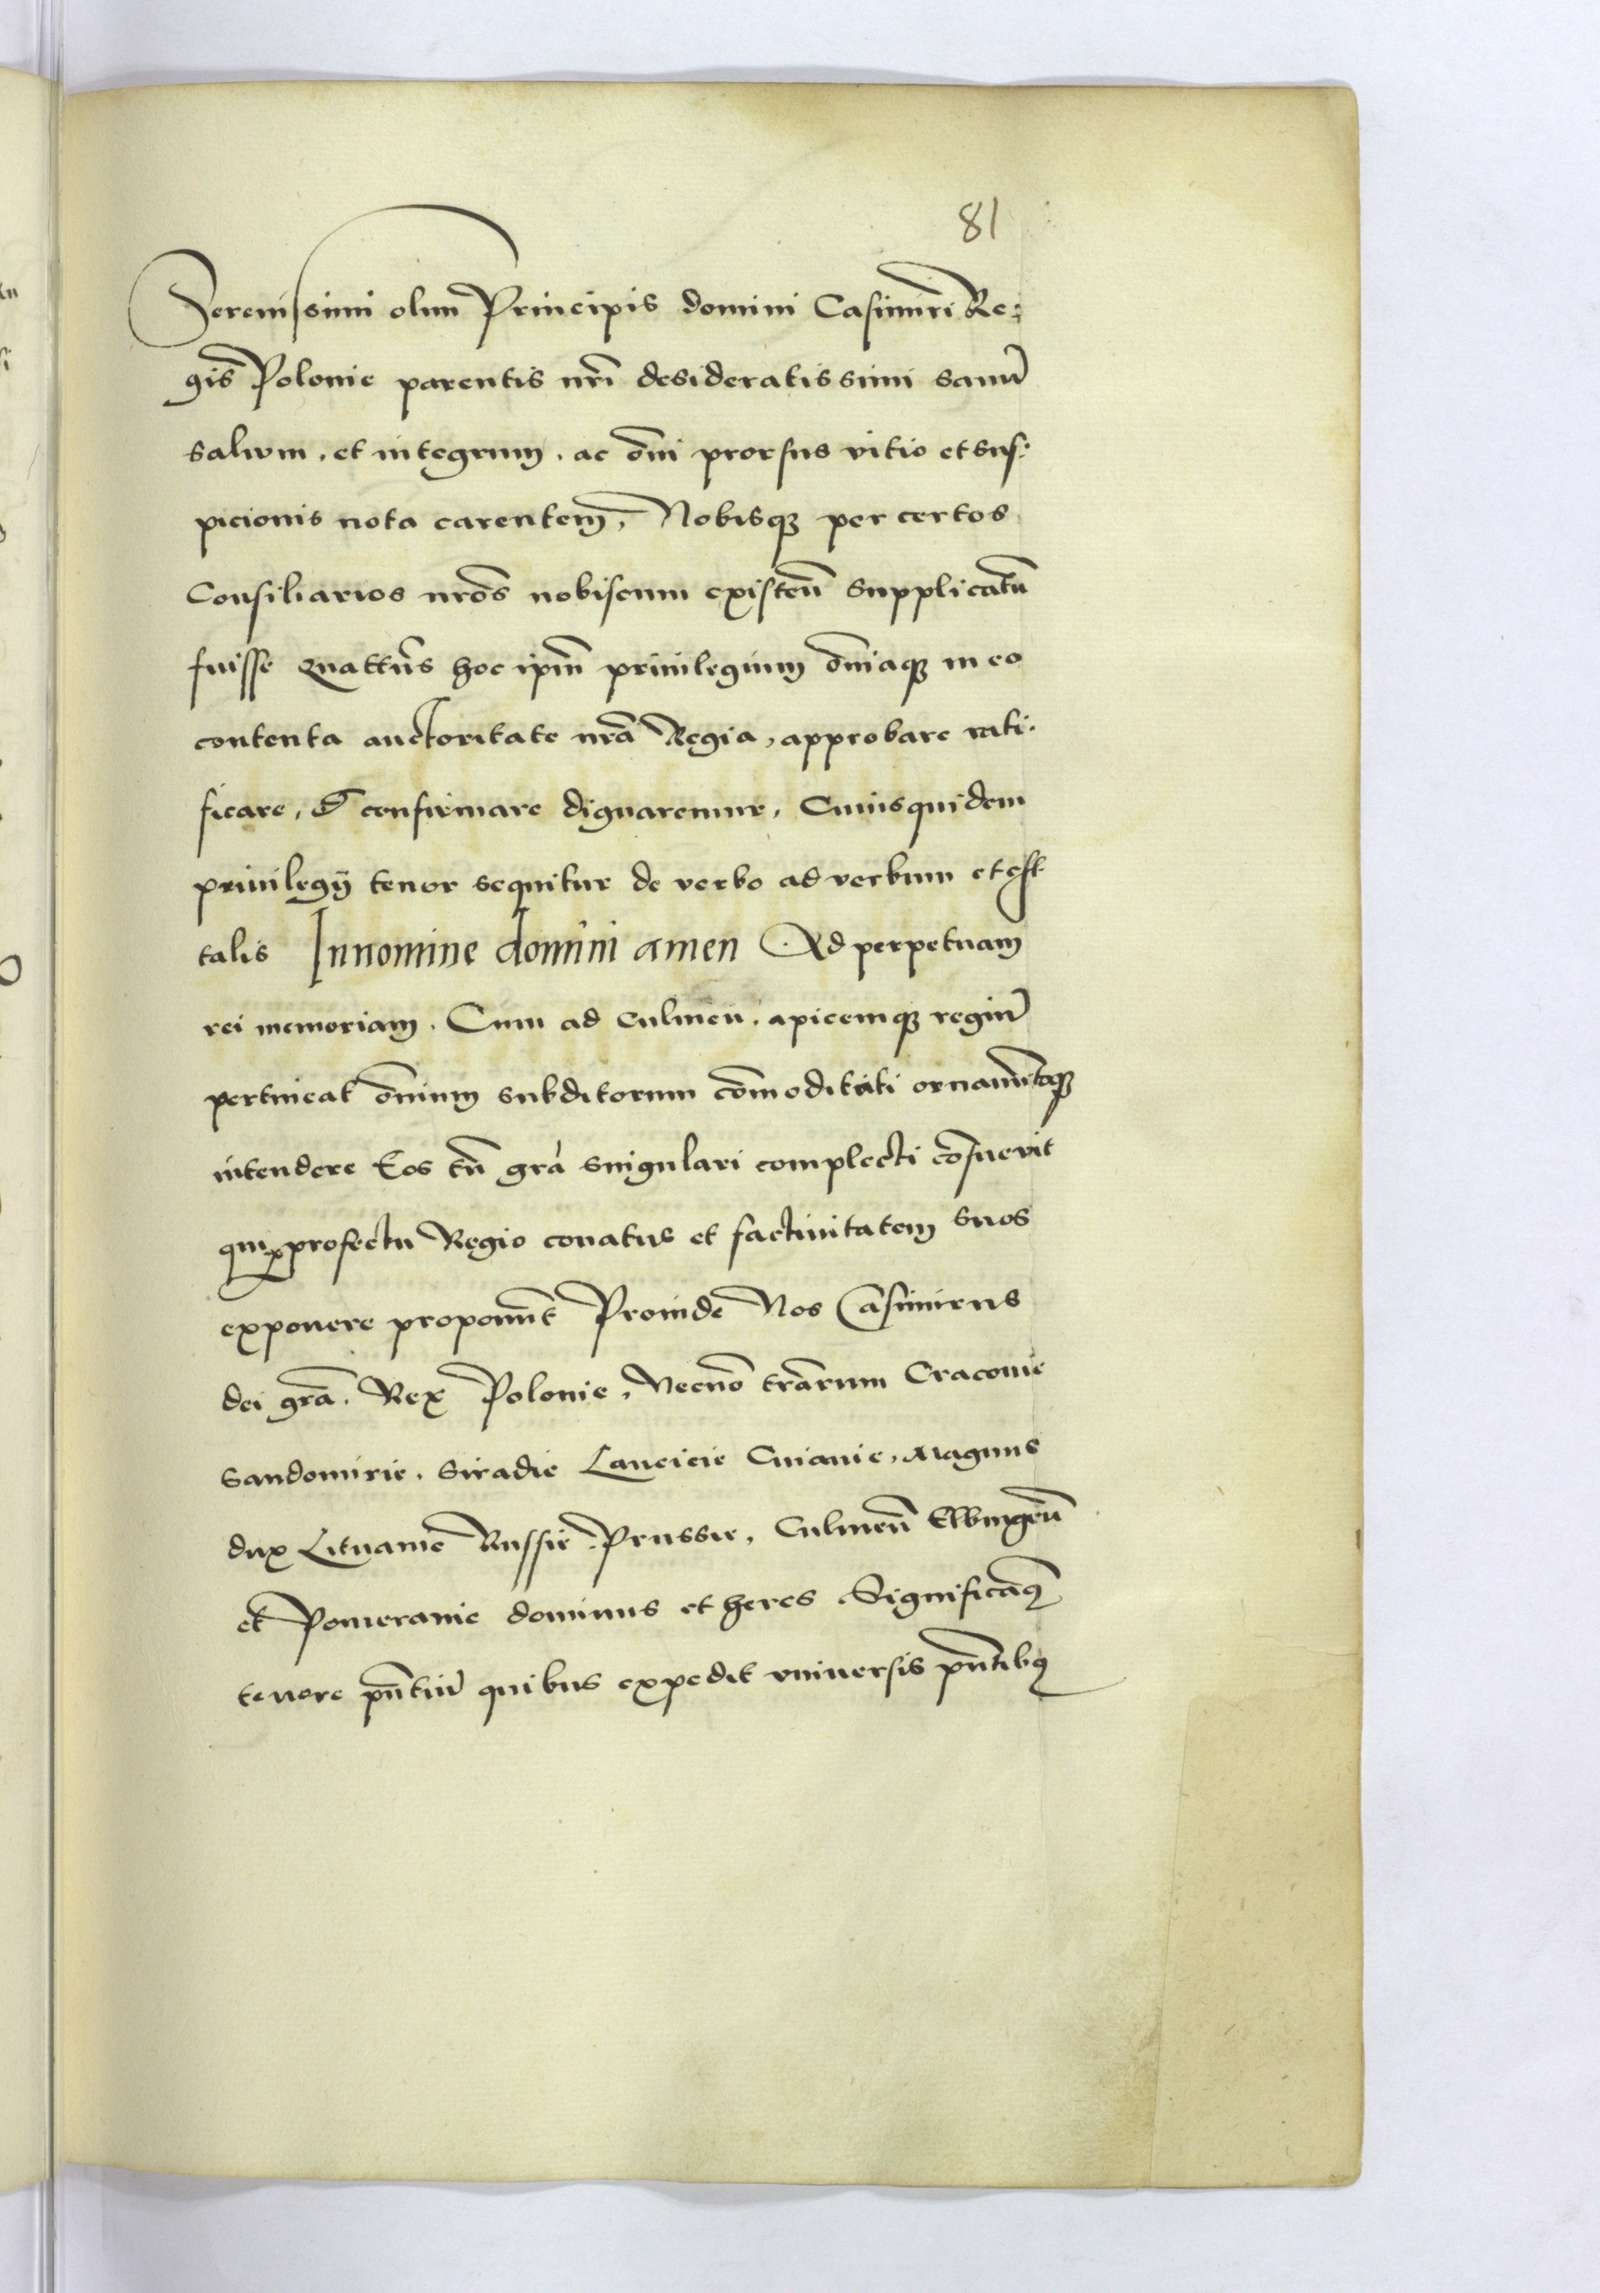 81
Serenissimi olim Principis domini Casimiri Re:
gis Polonie parentis nr̃i desideratissimi sanũ
saluum, et integrum, ac õni prorsus vitio et sus:
picionis nota carentem, Nobisq₃ per certos
Consiliarios nr̃os nobiscum existeñ supplicatũ
fuisse quattũs hoc ipm̃ priuilegium õniaq₃ in eo
contenta auctoritate nr̃a Regia, approbare rati:
ficare, & confirmare dignaremur, Cuiusquidem
priuilegij tenor sequitur de verbo ad verbum et est
talis In nomine domini amen Ad perpetuam
rei memoriam. Cum ad culmen, apicemq₃ regiũ
pertineat õnium subditorum cõmoditati ornamẽtisq₃
intendere Eos tñ gr̃a singulari complecti cõsueuit
qui ꝓ profectu Regio conatus et factiuitatem suos
exponere proponũt Proinde Nos Casimirus
dei gr̃a. Rex Polonie, Necnõ tr̃arum Cracouie
Sandomirie, Siradie Lancicie Cuiauie, Magnus
dux Lituanie Russie Prussie, Culmeñ Elbingeñ
et Pomeranie dominus et heres Significamꝰ
tenore pñtiũ quibus expedit vniuersis pñtibꝰ